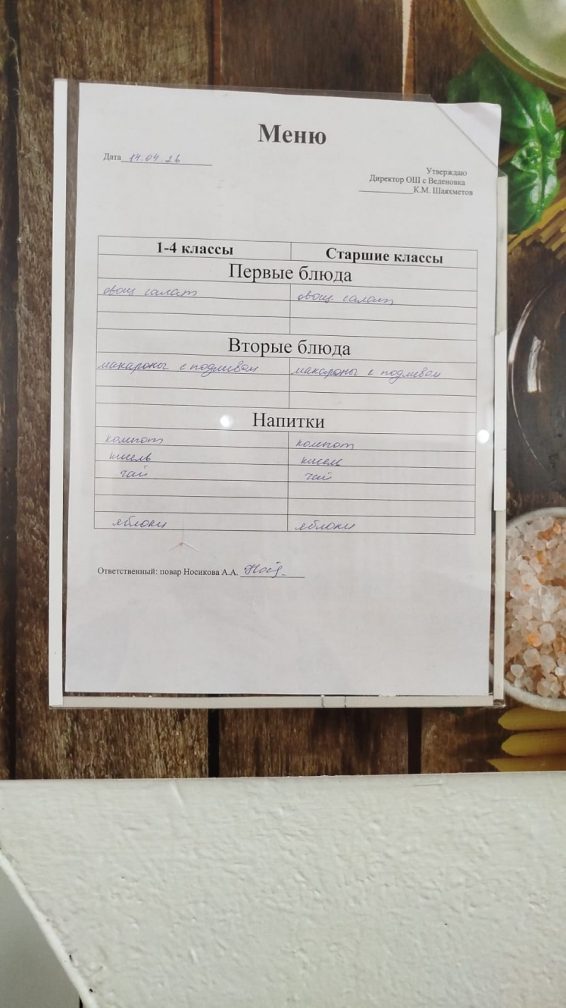 Меню
Дата 14.04.26
Утверждаю
Директор ОШ с Веденовка
К.М. Шаяхметов
1-4 классы Старшие классы
Первые блюда
овощ салат овощ салат
Вторые блюда
макароны с подливой макароны с подливой
Напитки
компот компот
кисель кисель
чай чай
яблоки яблоки
Ответственный: повар Носикова А.А.